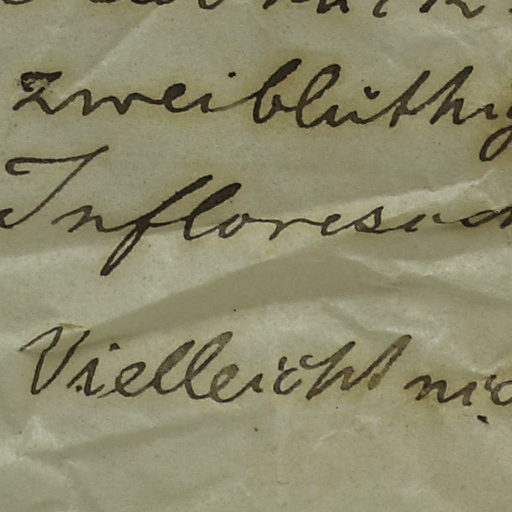 zweiblüthig
Inflorescen
Vielleicht nic